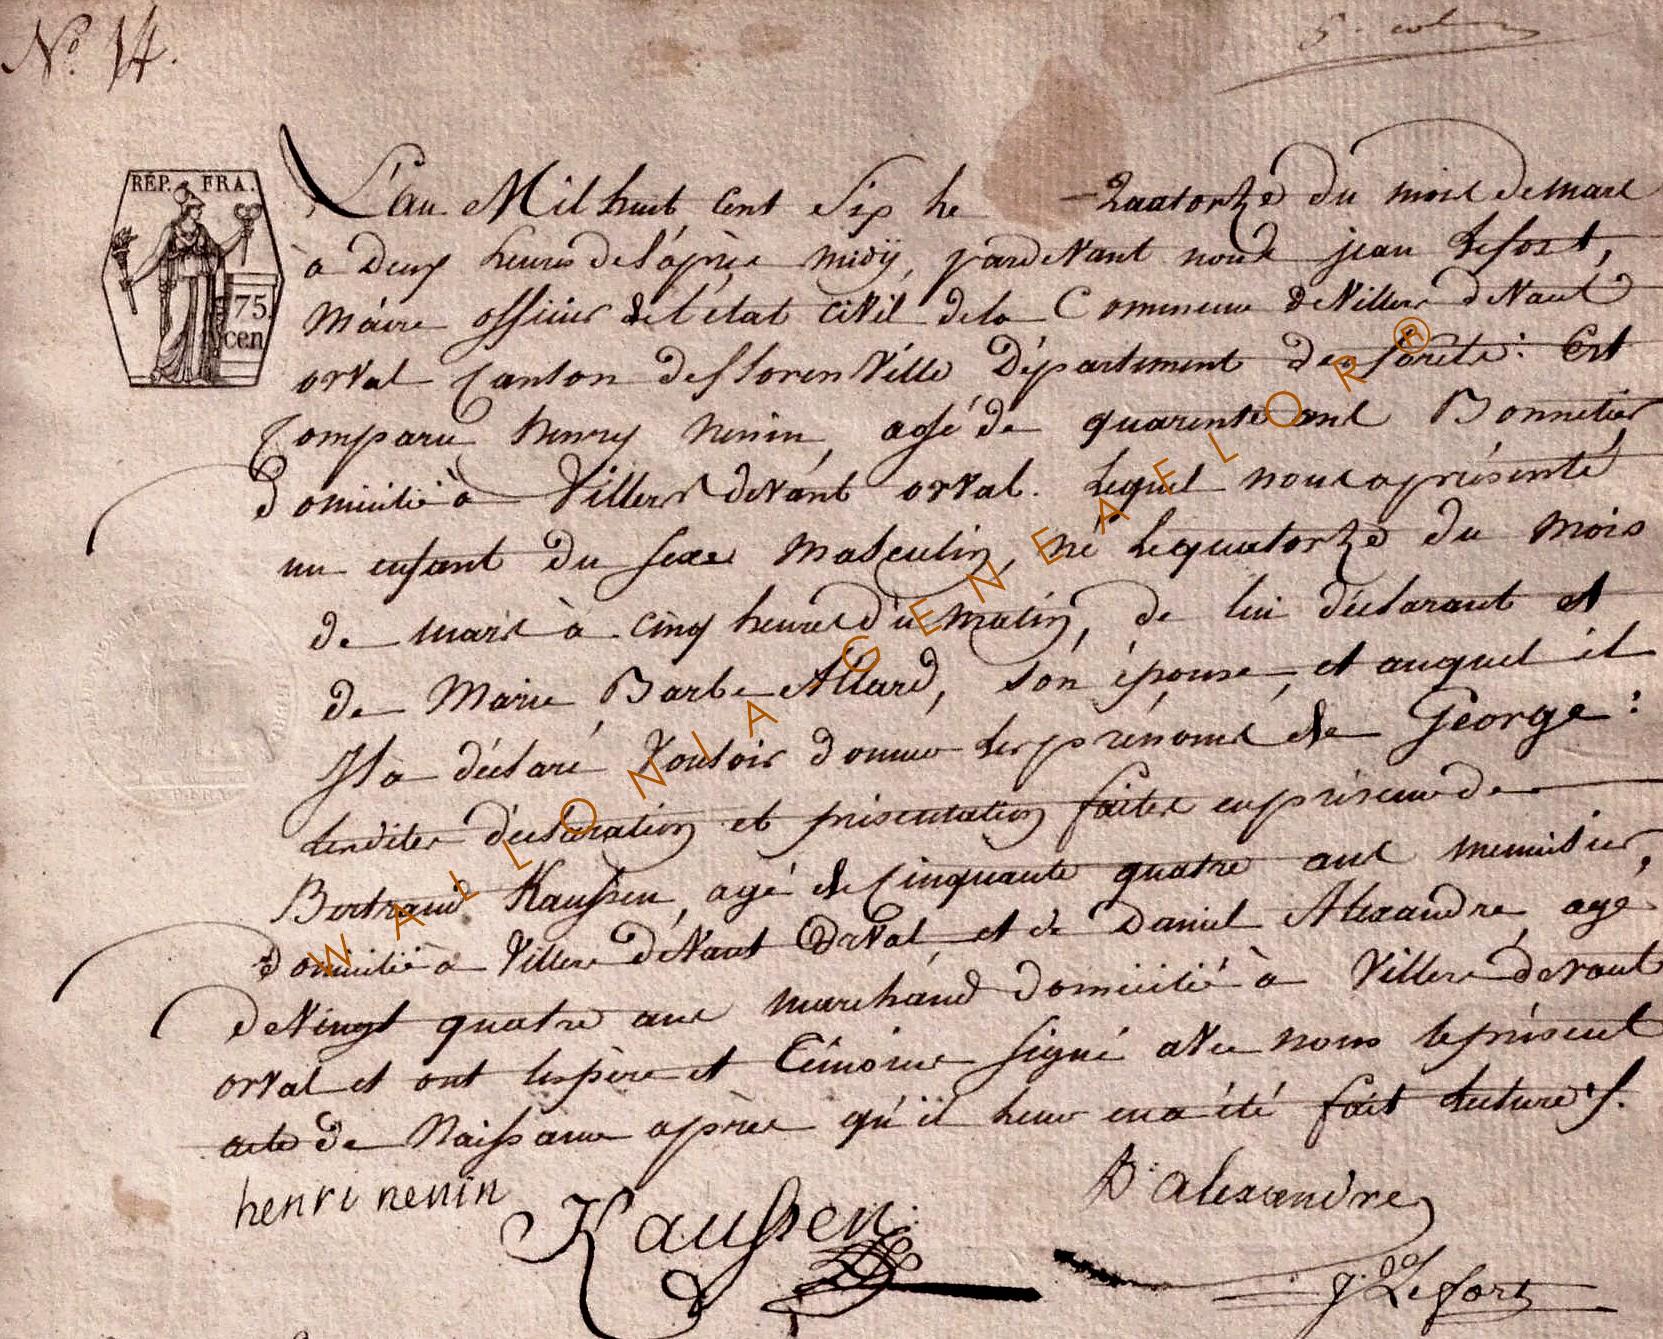 N.º 14.
RÉP. FRA.
75.
cen
L'an Mil huit Cent Six le Quatorze du mois de mars
à Deux heures de l'après midÿ, pardevant nous jean Lefort,
Maire officier de l'état civil de la Commune de Villers devant
orval Canton de florenville Département des forêts: Est
Comparu henry nenin, agé de quarente ans Bonnetier
Domicilié à Villers devant orval. Lequel nous a présenté
un enfant du sexe Masculin, né le quatorze du mois
de mars à cinq heures du matin, de lui déclarant et
de Marie Barbe Allard, son épouse, et auquel il
Il a déclaré vouloir donner les prénoms de George:
Lesdites déclaration et présentation faites en présence de
Bertrand Kaussen, agé de Cinquante quatre ans menuisier,
Domicilié à Villers devant Orval, et de Daniel Alexandre, agé
de Vingt quatre ans marchand domicilié à Villers devant
orval et ont les père et témoins signé avec nous le présent
acte de Naissance après qu'il leur en a été fait lecture
henri nenin
Kaussen
D. alexandre
J. Lefort
WALLONIA GENEAFELOR®